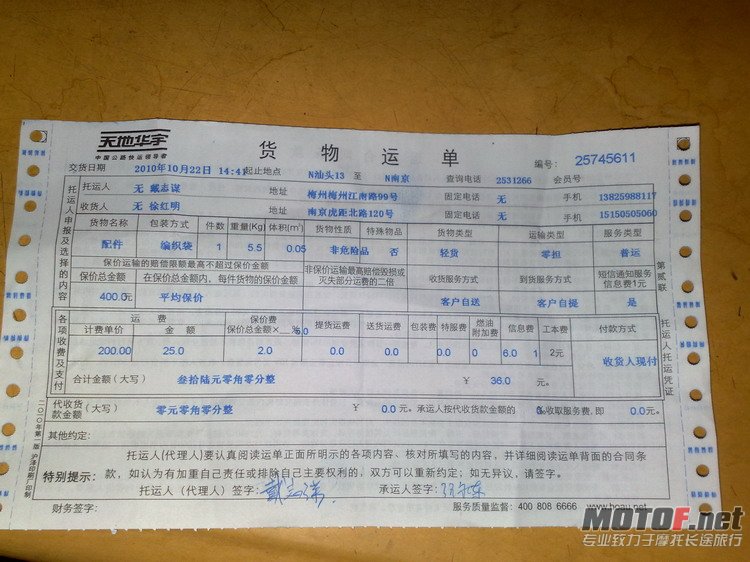 天地华宇
中国公路快运领导者
货物运单
编号: 25745611
交货日期 2010年10月22日 14:41 起止地点 N汕头13 至 N南京 查询电话 2531266 会员号
托运人 无 戴志谋 地址 梅州梅州江南路99号 固定电话 无 手机 13825988117
收货人 无 徐红明 地址 南京虎距北路120号 固定电话 无 手机 15150505060
托运人申报及选择的内容
货物名称 包装方式 件数 重量(Kg) 体积(m³) 货物性质 特殊物品 货物类型 运输类型 服务类型
配件 编织袋 1 5.5 0.05 非危险品 否 轻货 零担 普运
保价运输的赔偿限额最高不超过保价金额
保价总金额 在保价总金额内、每件货物的保价金额
非保价运输最高赔偿毁损或灭失部分运费的二倍
收货服务方式 到货服务方式 短信通知服务信息费1元
400.0元 平均保价 客户自送 客户自提 是
各项收费及支付
运费 保价费 提货运费 送货运费 包装费 特服费 燃油附加费 信息费 工本费 付款方式
计费单价 金额 保价总金额× %
5.0
200.00 25.0 2.0 0.0 0.0 0.0 0 6.0 1 2元 收货人现付
合计金额(大写) 叁拾陆元零角零分整 ¥ 36.0 元。
代收货款金额(大写) 零元零角零分整 ¥ 0.0 元。承运人按代收货款金额的 %收取服务费,即 0.0 元。
其他约定:
特别提示:
托运人(代理人)要认真阅读运单正面所明示的各项内容、核对所填写的内容,并详细阅读运单背面的合同条
款,如认为有加重自己责任或排除自己主要权利的,双方可以重新约定;如无异议,请签字。
托运人(代理人)签字: 承运人签字:
财务签字: 服务质量监督: 400 808 6666 www.hoau.net
第贰联
托运人托运凭证
二〇一〇年第一版
MOTOF.net
专业致力于摩托长途旅行